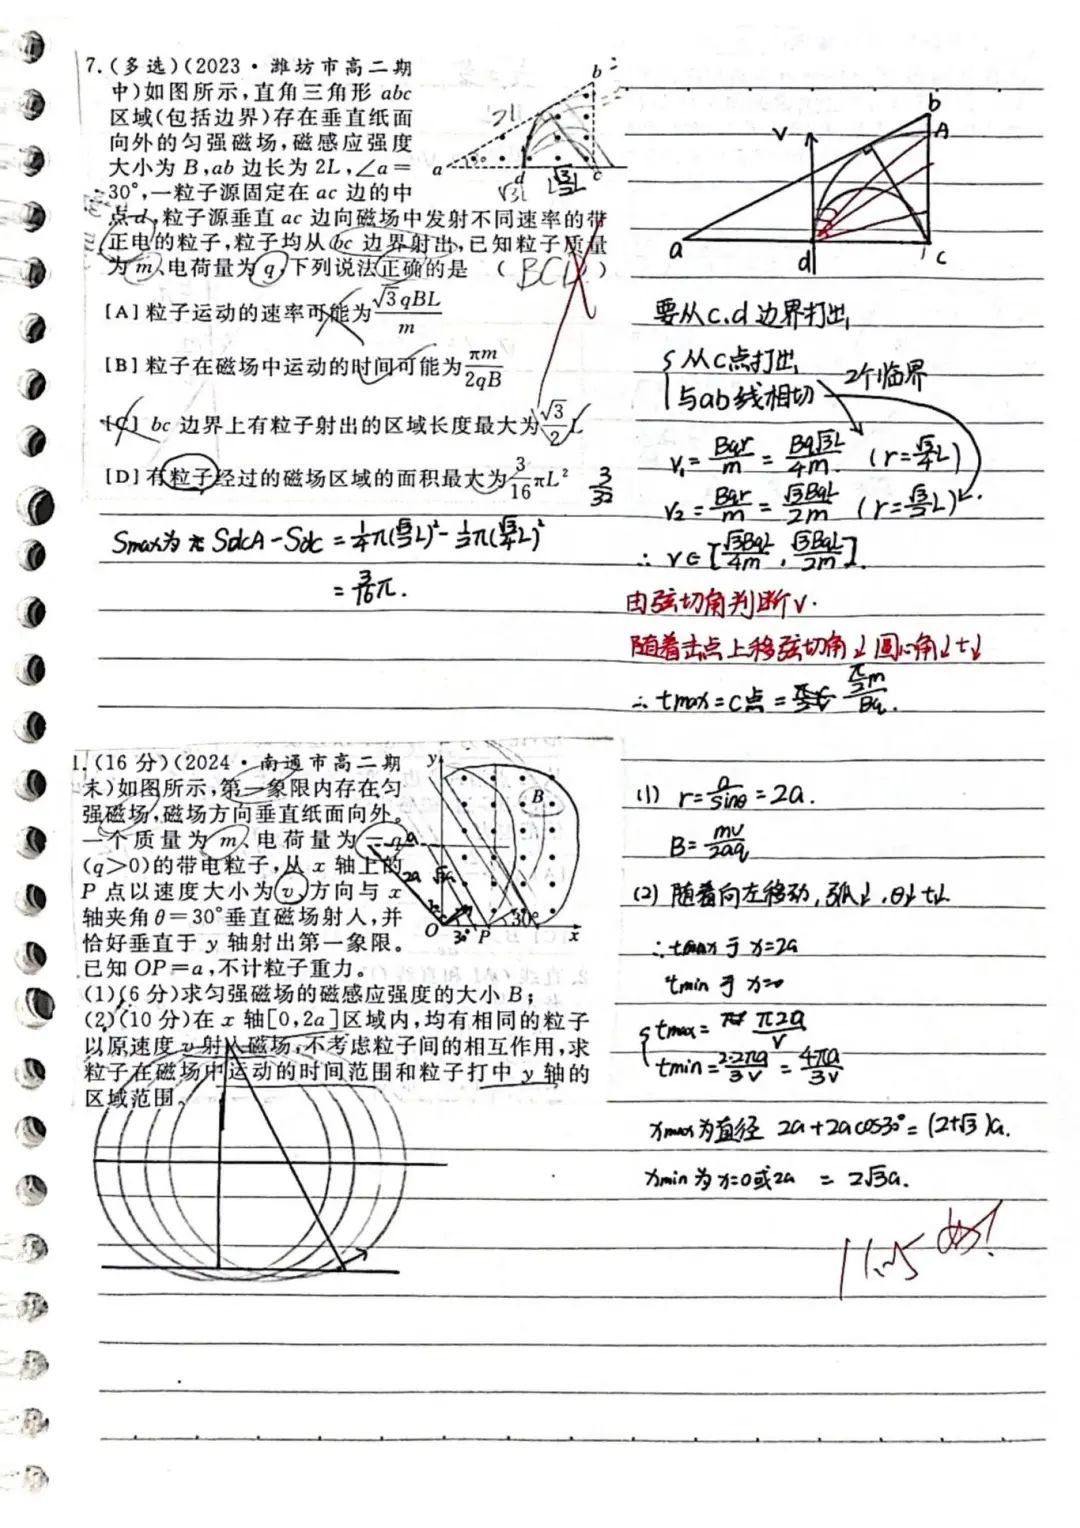 7.(多选)(2023·潍坊市高二期
中)如图所示,直角三角形 abc
区域(包括边界)存在垂直纸面
向外的匀强磁场,磁感应强度
大小为 B,ab 边长为 2L,∠a=
30°,一粒子源固定在 ac 边的中
点 d,粒子源垂直 ac 边向磁场中发射不同速率的带
正电的粒子,粒子均从 bc 边界射出,已知粒子质量
为 m、电荷量为 q,下列说法正确的是 ( BCD )
[A] 粒子运动的速率可能为 √3qBL/m
[B] 粒子在磁场中运动的时间可能为 πm/2qB
[C] bc 边界上有粒子射出的区域长度最大为 √3/2 L
[D] 有粒子经过的磁场区域的面积最大为 3/16 πL² 3/32
b
2L
a
d
c
√3L
b
A
v
a
d
c
Smax为 SdcA - Sdc = 1/4π(√3/2L)² - 1/2π(√3/4L)²
要从c.d边界打出
{从C点打出
与ab线相切
2个临界
V₁ = Bqr/m = Bq√3L/4m. (r=√3/4L)
V₂ = Bqr/m = √3BqL/2m (r=√3/2L)
∴ V∈[√3BqL/4m , √3BqL/2m].
由弦切角判断v.
随着击点上移弦切角↓圆心角↓t↓
∴ tmax = C点 =
1.(16 分)(2024·南通市高二期
末)如图所示,第一象限内存在匀
强磁场,磁场方向垂直纸面向外。
一个质量为 m、电荷量为 -q
(q>0)的带电粒子,从 x 轴上的
P 点以速度大小为 v、方向与 x
轴夹角 θ=30°垂直磁场射入,并
恰好垂直于 y 轴射出第一象限。
已知 OP=a,不计粒子重力。
(1)(6 分)求匀强磁场的磁感应强度的大小 B;
(2)(10 分)在 x 轴[0,2a]区域内,均有相同的粒子
以原速度 v 射入磁场,不考虑粒子间的相互作用,求
粒子在磁场中运动的时间范围和粒子打中 y 轴的
区域范围。
y
B
2a
O
30°
P
30°
x
(1) r = a/sinθ = 2a.
B = mv/2aq
(2) 随着向左移动,弧↓,θ↓t↓
∴tmax 于 x=2a
tmin 于 x=0
{tmax = π2a/v
tmin = 2·2πa/3v = 4πa/3v
xmax为直径 2a+2acos30° = (2+√3)a.
xmin为x=0或2a = 2√3a.
11.5